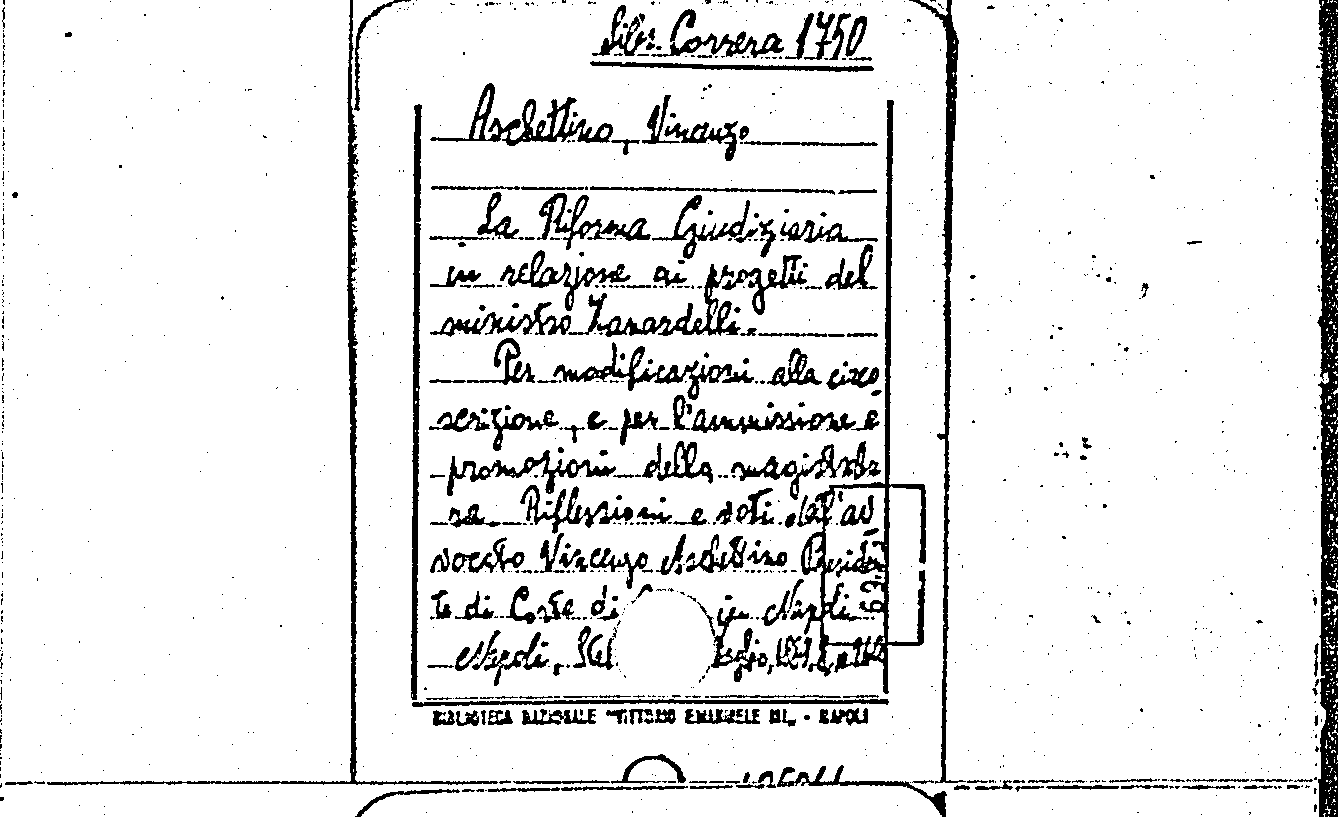 Libr. Correra 1750
Aschettino, Vincenzo
La Riforma Giudiziaria
in relazione ai progetti del
ministro Zanardelli.
Per modificazioni alla circo
scrizione, e per l'ammissione e
promozioni della magistratu
ra. Riflessioni e voti dell'av
vocato Vincenzo Aschettino Presiden
te di Corte di in Napoli
Napoli,
BIBLIOTECA NAZIONALE "VITTORIO EMANUELE III" - NAPOLI